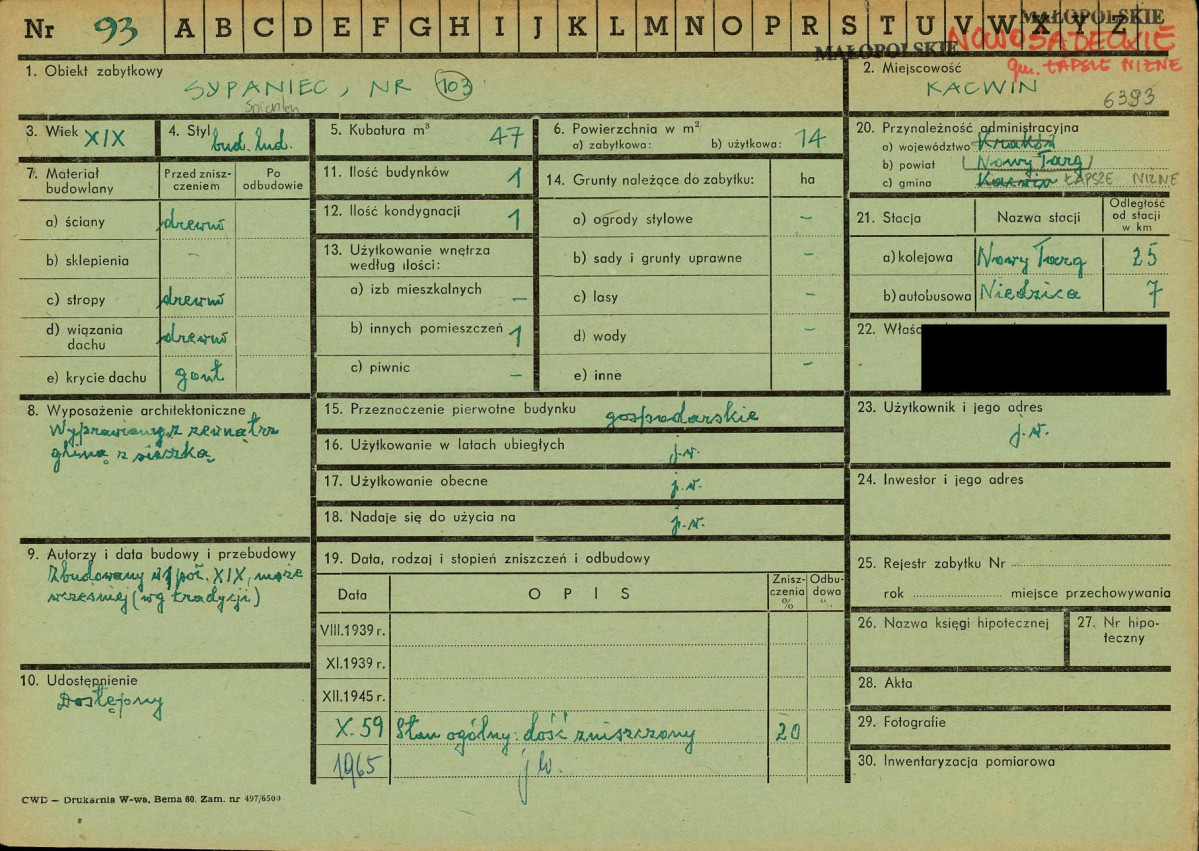 Nr 93 A B C D E F G H I J K L M N O P R S T U V W X Y Z
MAŁOPOLSKIE
MAŁOPOLSKIE
NOWOSĄDECKIE
gm. ŁAPSZE NIŻNE
1. Obiekt zabytkowy
SYPANIEC, NR 103
Spichlerz
2. Miejscowość
KACWIN
6393
3. Wiek XIX
4. Styl bud. lud.
5. Kubatura m³ 47
6. Powierzchnia w m²
a) zabytkowa: b) użytkowa: 14
7. Materiał budowlany
Przed zniszczeniem
Po odbudowie
a) ściany drewno
b) sklepienia –
c) stropy drewno
d) wiązania dachu drewno
e) krycie dachu gont
8. Wyposażenie architektoniczne
Wyprawiony z zewnątrz
gliną z sieszką
9. Autorzy i data budowy i przebudowy
Zbudowany w 1 poł. XIX, może
wczesnej (wg tradycji)
10. Udostępnienie
Dostępny
11. Ilość budynków 1
12. Ilość kondygnacji 1
13. Użytkowanie wnętrza
według ilości:
a) izb mieszkalnych –
b) innych pomieszczeń 1
c) piwnic –
14. Grunty należące do zabytku: ha
a) ogrody stylowe –
b) sady i grunty uprawne –
c) lasy –
d) wody –
e) inne –
15. Przeznaczenie pierwotne budynku gospodarskie
16. Użytkowanie w latach ubiegłych j.w.
17. Użytkowanie obecne j.w.
18. Nadaje się do użycia na j.w.
19. Data, rodzaj i stopień zniszczeń i odbudowy
Data OPIS Zniszczenia % Odbudowa %
VIII.1939 r.
XI.1939 r.
XII.1945 r.
X.59 Stan ogólny: dość zniszczony 20
1965 j w.
20. Przynależność administracyjna
a) województwo Kraków
b) powiat (Nowy Targ)
c) gmina Kacwin ŁAPSZE NIŻNE
21. Stacja Nazwa stacji Odległość od stacji w km
a) kolejowa Nowy Targ 25
b) autobusowa Niedzica 7
22. Właśc
23. Użytkownik i jego adres
j.w.
24. Inwestor i jego adres
25. Rejestr zabytku Nr
rok miejsce przechowywania
26. Nazwa księgi hipotecznej
27. Nr hipoteczny
28. Akta
29. Fotografie
30. Inwentaryzacja pomiarowa
CWD – Drukarnia W-wa, Bema 60. Zam. nr 497/6500